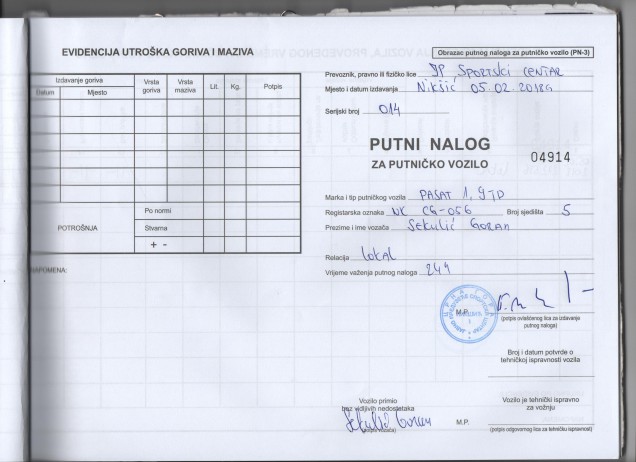 EVIDENCIJA UTROŠKA GORIVA I MAZIVA
Izdavanje goriva
Datum Mjesto
Vrsta goriva
Vrsta maziva
Lit.
Kg.
Potpis
POTROŠNJA
Po normi
Stvarna
+ -
NAPOMENA:
Obrazac putnog naloga za putničko vozilo (PN-3)
Prevoznik, pravno ili fizičko lice JP SPORTSKI CENTAR
Mjesto i datum izdavanja Nikšić 05.02.2018G
Serijski broj 014
PUTNI NALOG
ZA PUTNIČKO VOZILO 04914
Marka i tip putničkog vozila PASAT 1,9 TD
Registarska oznaka NK CG-056 Broj sjedišta 5
Prezime i ime vozača Sekulić Goran
Relacija Lokal
Vrijeme važenja putnog naloga
M.P.
(potpis ovlašćenog lica za izdavanje
putnog naloga)
Broj i datum potvrde o
tehničkoj ispravnosti vozila
Vozilo primio
bez vidljivih nedostataka
Sekulić Goran
M.P.
Vozilo je tehnički ispravno
za vožnju
(potpis odgovornog lica za tehničku ispravnost)